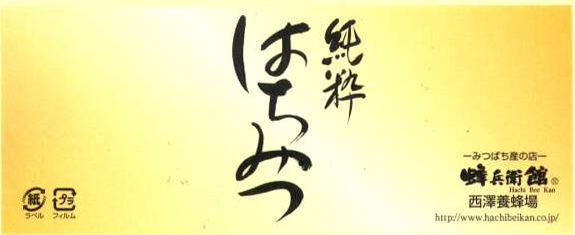 純粋
はちみつ
―みつばち産の店―
蜂兵衛館®
Hachi Bee Kan
西澤養蜂場
http://www.hachibeikan.co.jp/
紙
ラベル
プラ
フィルム